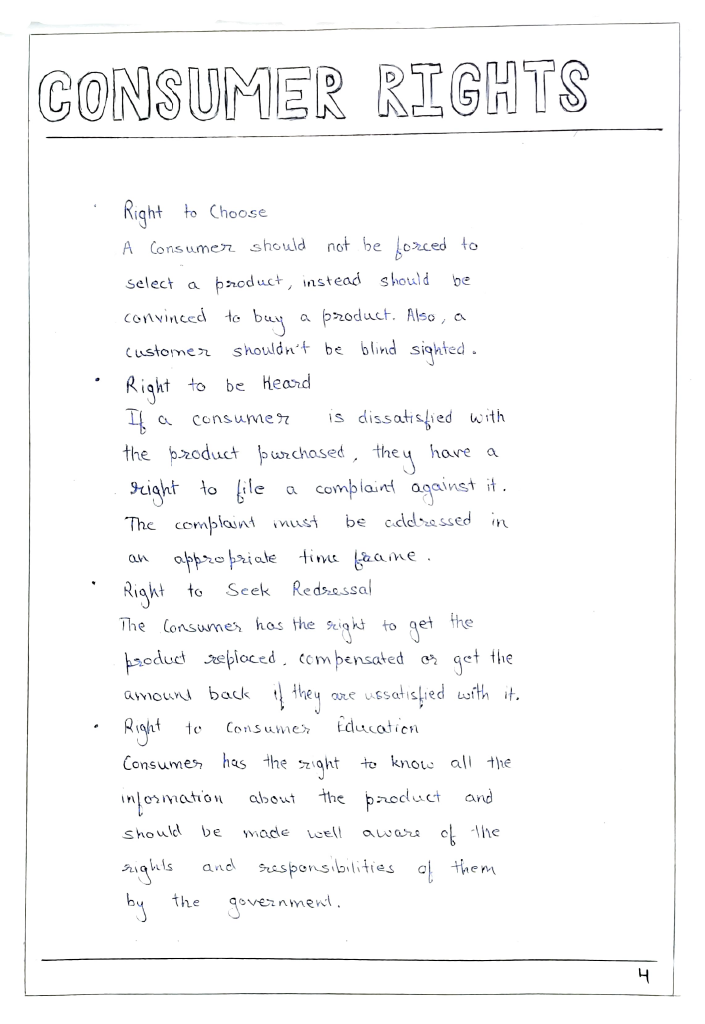 CONSUMER RIGHTS
• Right to Choose
A Consumer should not be forced to
select a product, instead should be
convinced to buy a product. Also, a
customer shouldn't be blind sighted.
• Right to be Heard
If a consumer is dissatisfied with
the product purchased, they have a
right to file a complaint against it.
The complaint must be addressed in
an appropriate time frame.
• Right to Seek Redressal
The Consumer has the right to get the
product replaced, compensated or get the
amount back if they are ussatisfied with it.
• Right to Consumer Education
Consumer has the right to know all the
information about the product and
should be made well aware of the
rights and responsibilities of them
by the government.
4